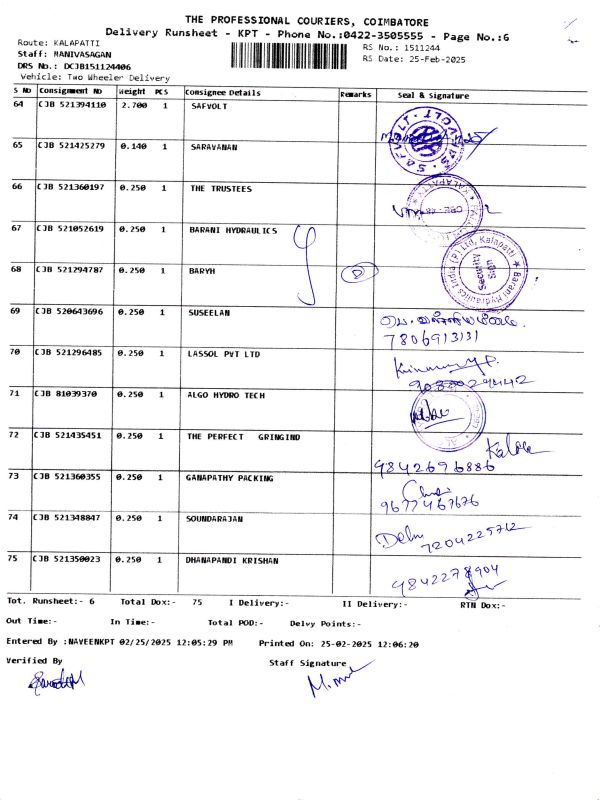 THE PROFESSIONAL COURIERS, COIMBATORE
Delivery Runsheet - KPT - Phone No.:0422-3505555 - Page No.:6
Route: KALAPATTI RS No.: 1511244
Staff: MANIVASAGAN RS Date: 25-Feb-2025
DRS No.: DCJB151124406
Vehicle: Two Wheeler Delivery
S No Consignment No Weight PCS Consignee Details Remarks Seal & Signature
64 CJB 521394110 2.700 1 SAFVOLT
65 CJB 521425279 0.140 1 SARAVANAN
66 CJB 521360197 0.250 1 THE TRUSTEES
KALAPATTI
67 CJB 521052619 0.250 1 BARANI HYDRAULICS
Barani Hydraulics India (P) Ltd, Kalapatti
Security Sign
68 CJB 521294787 0.250 1 BARYH D
69 CJB 520643696 0.250 1 SUSEELAN
7806913131
70 CJB 521296485 0.250 1 LASSOL PVT LTD
71 CJB 81039370 0.250 1 ALGO HYDRO TECH
72 CJB 521435451 0.250 1 THE PERFECT GRINGIND
9842696886
73 CJB 521360355 0.250 1 GANAPATHY PACKING
9677467676
74 CJB 521348847 0.250 1 SOUNDARAJAN
7204225712
75 CJB 521350023 0.250 1 DHANAPANDI KRISHAN
9842278904
Tot. Runsheet:- 6 Total Dox:- 75 I Delivery:- II Delivery:- RTN Dox:-
Out Time:- In Time:- Total POD:- Delvy Points:-
Entered By :NAVEENKPT 02/25/2025 12:05:29 PM Printed On: 25-02-2025 12:06:20
Verified By Staff Signature